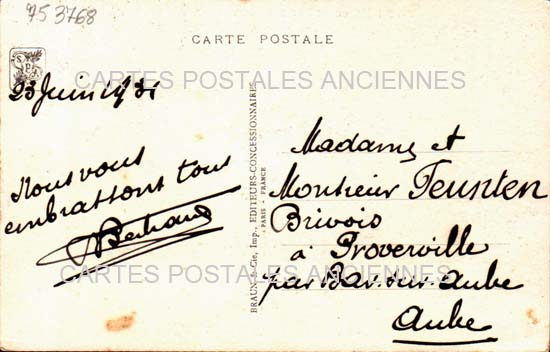 75 3768
CARTE POSTALE
CARTES POSTALES ANCIENNES
23 Juin 1931
Nous vous
embrassons tous
Bertrand
BRAUN & Cie, Imp., EDITEURS-CONCESSIONNAIRES
PARIS - FRANCE
Madame et
Monsieur Feunten
Brivois
à Proverville
par Bar-sur-Aube
Aube
CARTES POSTALES ANCIENNES